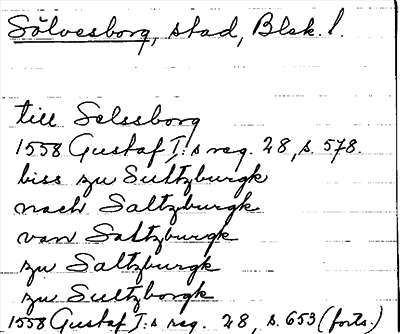 Sölvesborg, stad, Blek. l.
till Selssborg
1558 Gustaf I:s reg. 28, s. 578.
biss zu Sultzburgk
nach Saltzburgk
van Saltzburgk
zu Saltzburgk
zu Sultzborgk
1558 Gustaf I:s reg. 28, s. 653 (forts.)